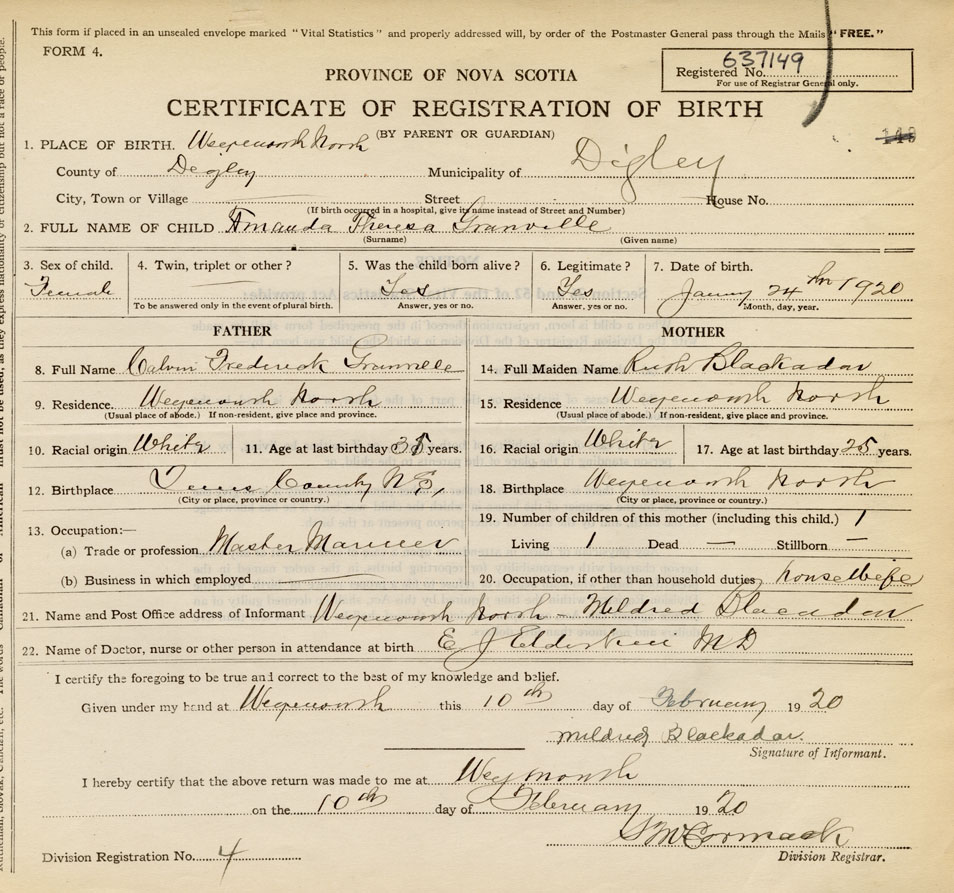 This form if placed in an unsealed envelope marked "Vital Statistics" and properly addressed will, by order of the Postmaster General pass through the Mails "FREE."
FORM 4.
637149
Registered No.
For use of Registrar General only.
PROVINCE OF NOVA SCOTIA
CERTIFICATE OF REGISTRATION OF BIRTH
(BY PARENT OR GUARDIAN)
1. PLACE OF BIRTH. Weymouth North
County of Digby Municipality of Digby
City, Town or Village Street House No.
(If birth occurred in a hospital, give its name instead of Street and Number)
2. FULL NAME OF CHILD Amanda Theresa Granville
(Surname) (Given name)
3. Sex of child. 4. Twin, triplet or other? 5. Was the child born alive? 6. Legitimate? 7. Date of birth.
Female Yes Yes Jany 24th 1920
To be answered only in the event of plural birth. Answer, yes or no. Answer, yes or no. Month, day, year.
FATHER MOTHER
8. Full Name Calvin Frederick Granville 14. Full Maiden Name Ruth Blackadar
9. Residence. Weymouth North 15. Residence Weymouth North
(Usual place of abode.) If non-resident, give place and province. (Usual place of abode.) If non-resident, give place and province.
10. Racial origin White 11. Age at last birthday 35 years. 16. Racial origin White 17. Age at last birthday 25 years.
12. Birthplace County 18. Birthplace Weymouth North
(City or place, province or country.) (City or place, province or country.)
13. Occupation:— 19. Number of children of this mother (including this child.) 1
(a) Trade or profession Master Mariner Living 1 Dead — Stillborn —
(b) Business in which employed 20. Occupation, if other than household duties housewife
21. Name and Post Office address of Informant Weymouth North - Mildred Blackadar
22. Name of Doctor, nurse or other person in attendance at birth E J Elderkin MD
I certify the foregoing to be true and correct to the best of my knowledge and belief.
Given under my hand at Weymouth this 10th day of February 1920
Mildred Blackadar.
Signature of Informant.
I hereby certify that the above return was made to me at Weymouth
on the 10th day of February 1920
S McCormack
Division Registration No. 4 Division Registrar.